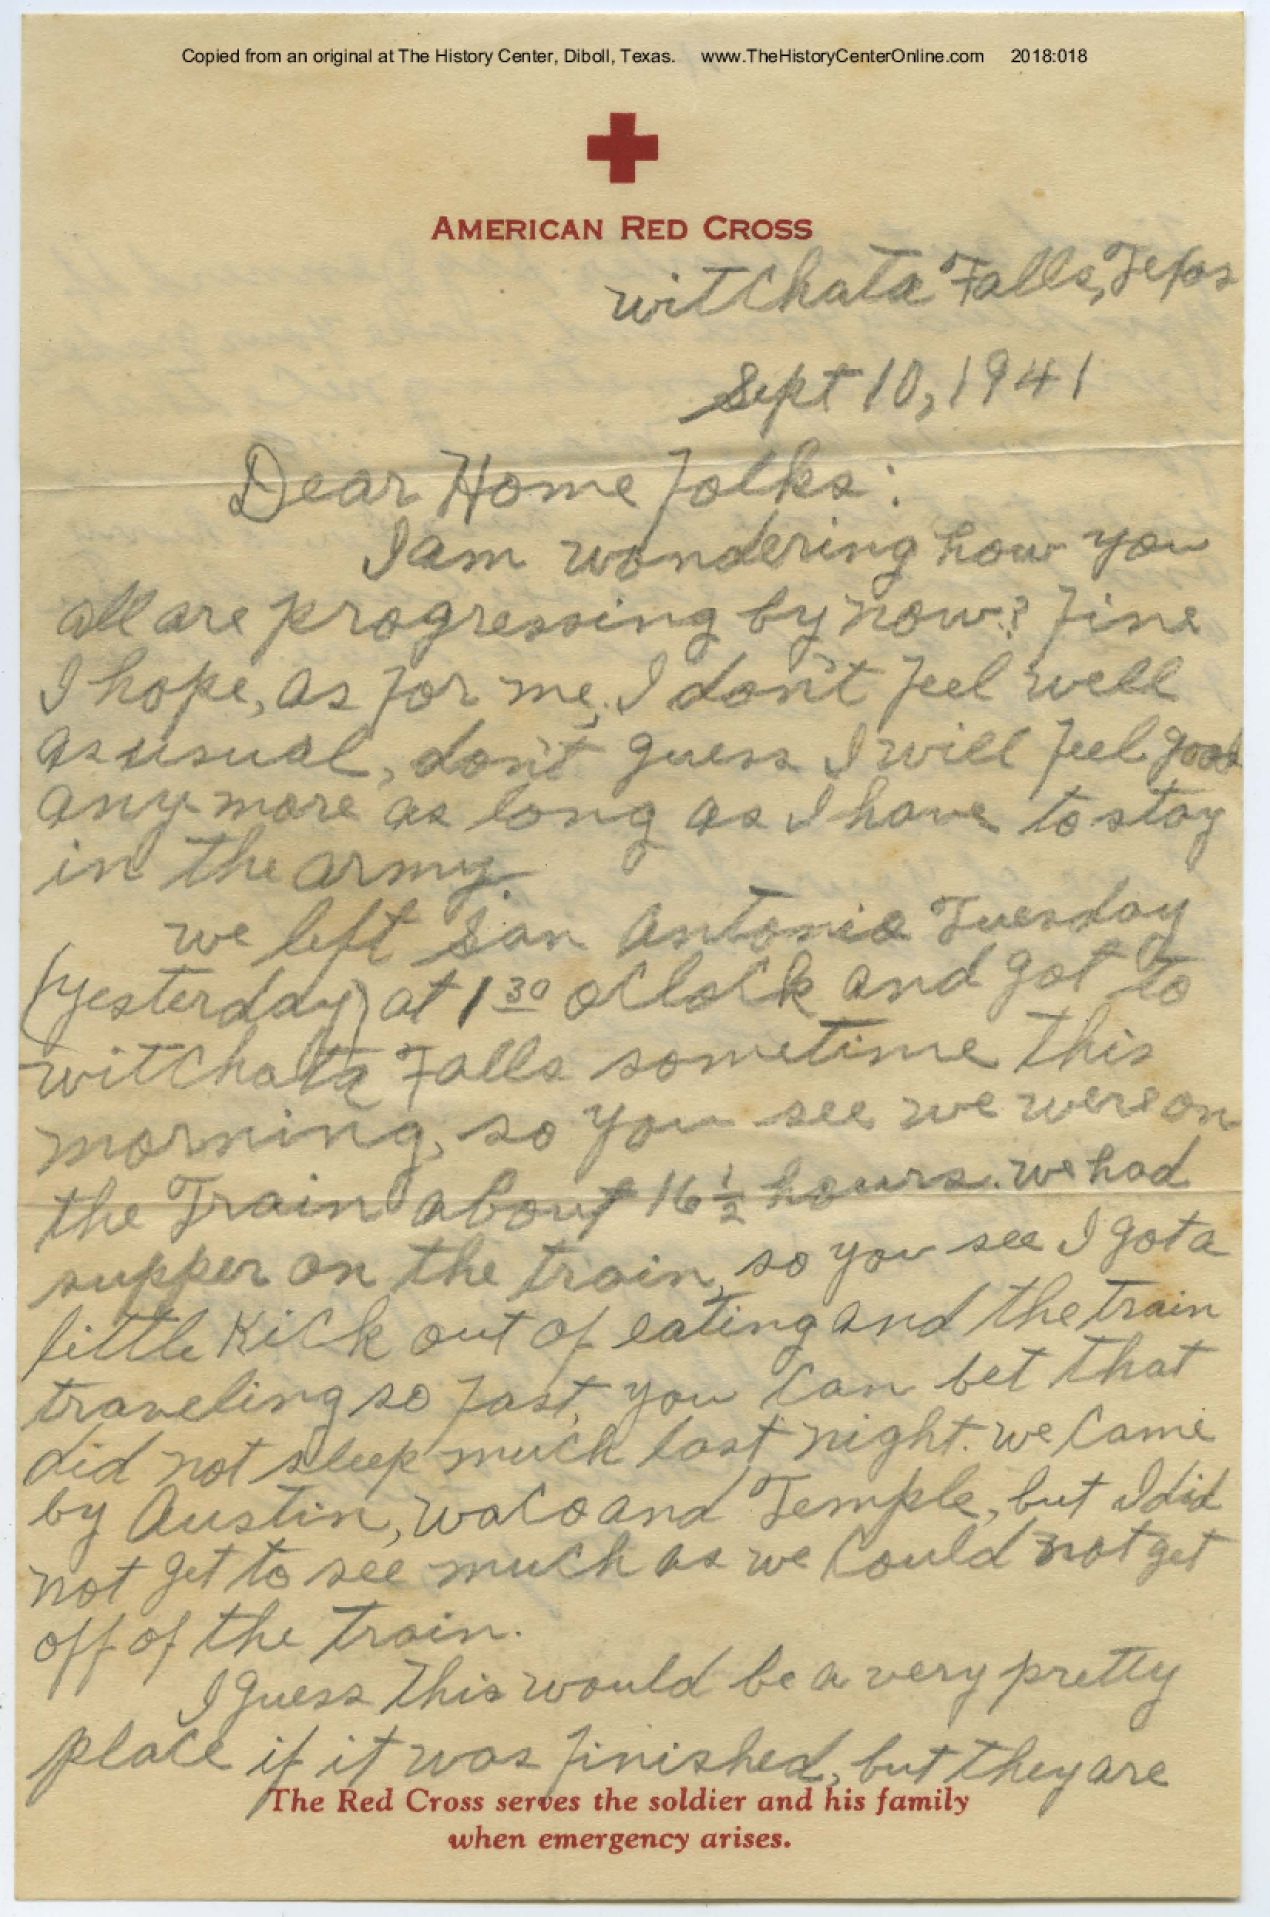 Copied from an original at The History Center, Diboll, Texas. www.TheHistoryCenterOnline.com 2018:018
AMERICAN RED CROSS
Witchata Falls, Texas
Sept 10, 1941
Dear Home Folks:
I am wondering how you
all are progressing by now? Fine
I hope, as for me, I don't feel well
as usual, don't guess I will feel good
any more as long as I have to stay
in the army.
we left San Antonio Tuesday
(yesterday) at 1 30 oClock and got to
witchata Falls sometime this
morning, so you see we were on
the Train about 16 1/2 hours. we had
supper on the train, so you see I got a
little kick out of eating and the train
traveling so fast, you can bet that
did not sleep much last night. we came
by Austin, Waco and Temple, but I did
not get to see much as we could not get
off of the train.
I guess this would be a very pretty
place if it was finished, but they are
The Red Cross serves the soldier and his family
when emergency arises.